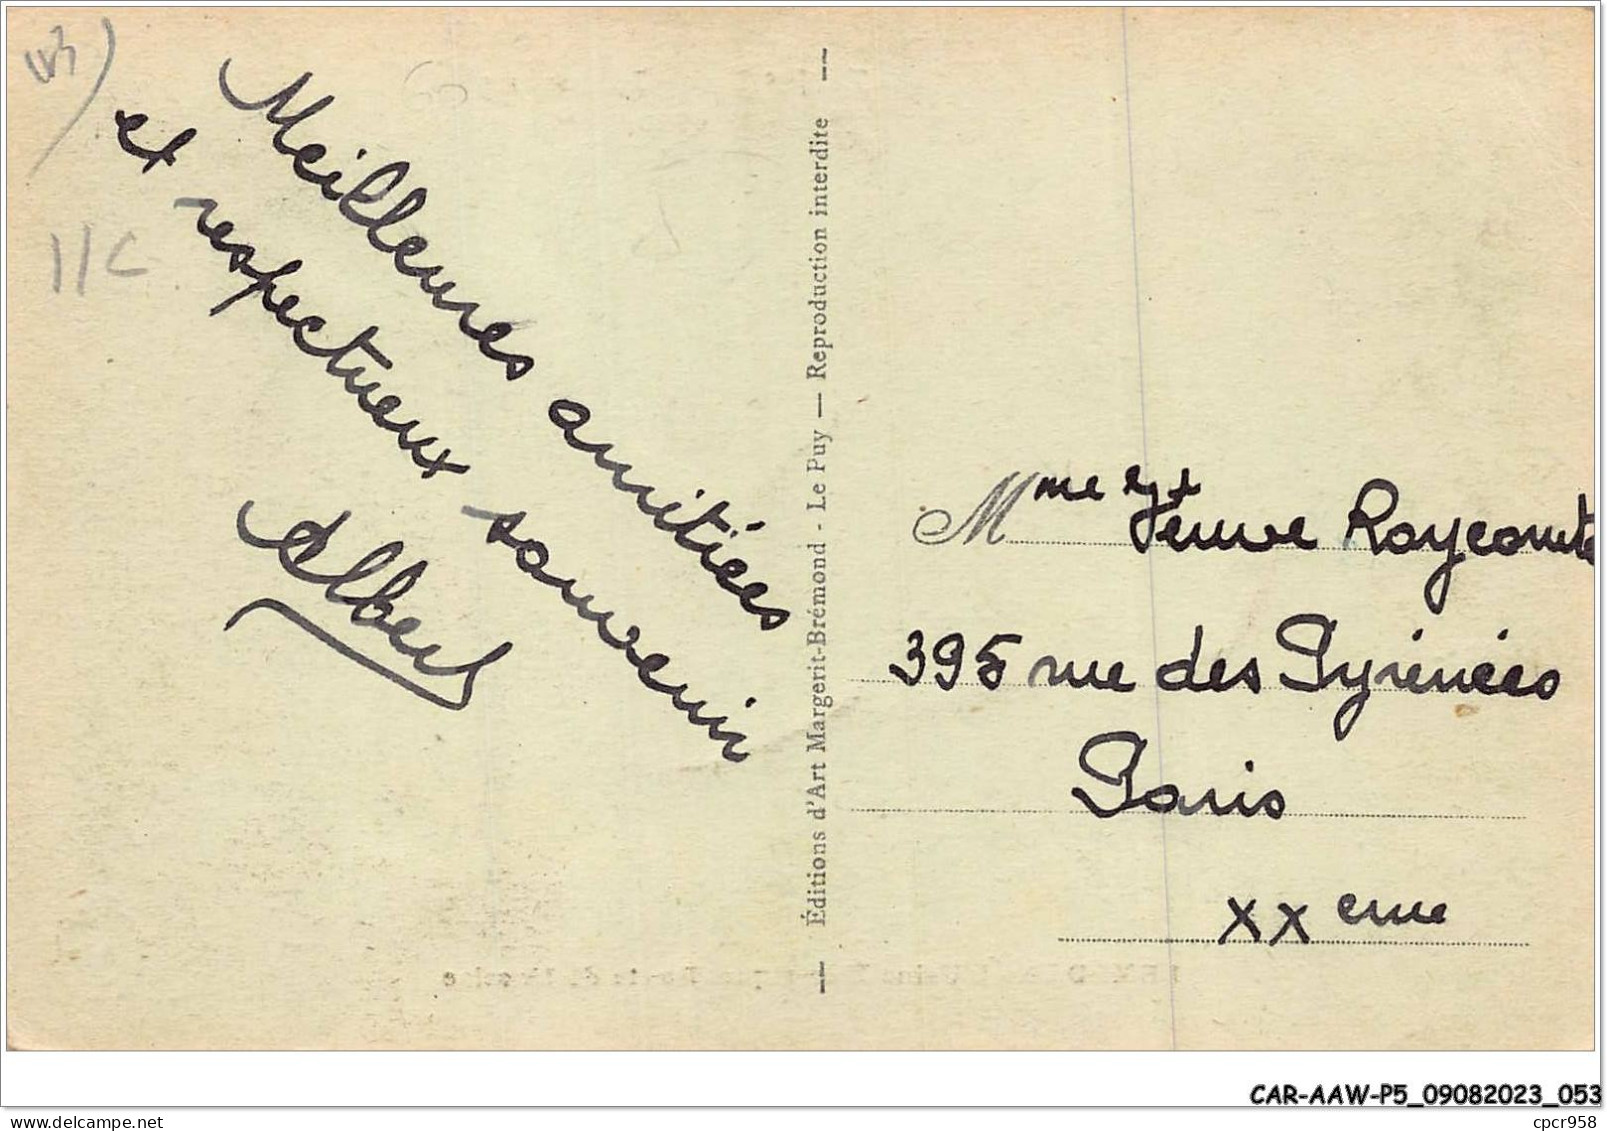 Meilleures amitiées
et respectueux souvenir
Albert
Éditions d'Art Margerit-Brémond - Le Puy — Reproduction interdite
Mme et
Veuve Roycomte
395 rue des Pyrénées
Paris
XXeme
11C
CAR-AAW-P5_09082023_053
delcampe.net
cpcr958